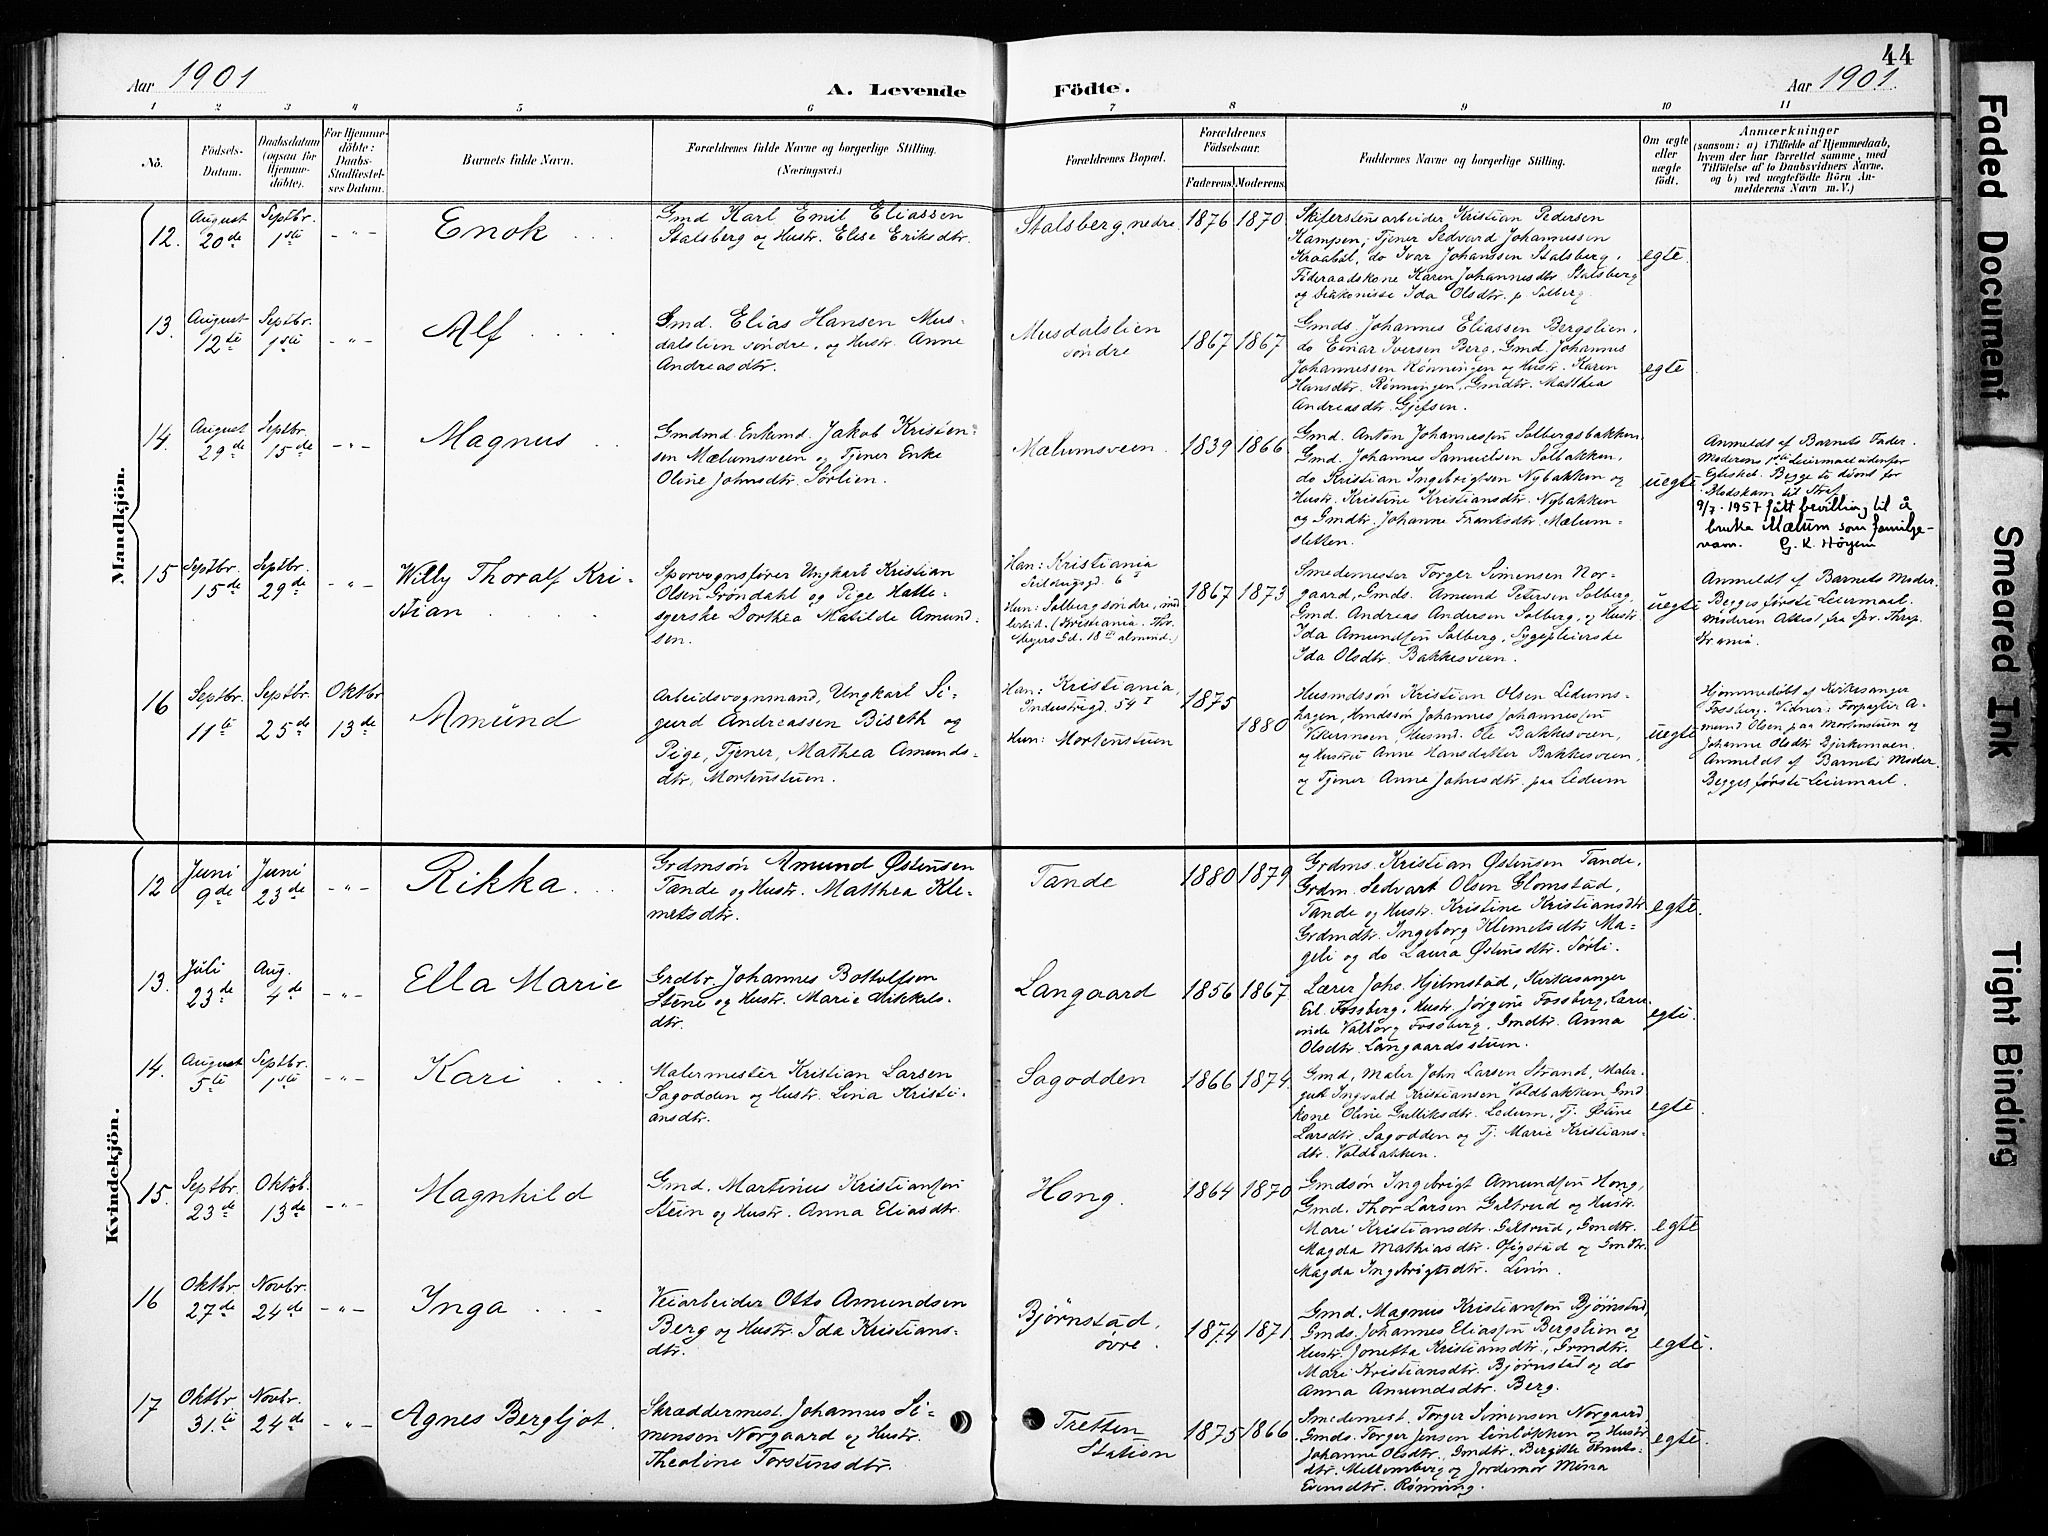 44
Aar 1901
A. Levende Födte.
Aar 1901.
1 2 3 4 5 6 7 8 9 10 11
No.
Födsels-
Datum.
Daabsdatum
(ogsaa for
Hjemme-
döbte).
For Hjemme-
döbte:
Daabs-
Stadfæstel-
ses Datum.
Barnets fulde Navn.
Forældrenes fulde Navne og borgerlige Stilling.
(Næringsvei.)
Forældrenes Bopæl.
Forældrenes
Fødselsaar.
Faderens.
Moderens.
Faddernes Navne og borgerlige Stilling.
Om ægte
eller
uægte
födt.
Anmærkninger
(saasom: a) i Tilfælde af Hjemmedaab,
hvem der har forrettet samme, med
Tilföielse af to Daabsvidners Navne,
og b) ved uægtefödte Börn An-
melderens Navn m. V.)
Mandkjön.
12.
August
20de
Septbr.
1ste
-"-
Enok
Gmd Karl Emil Eliassen
Stalsberg og Hustr. Elise Eriksdtr.
Stalsberg, nedre.
1876
1870
Skiferstensarbeider Kristian Pedersen
Kampen, Tjener Sedvard Johannessen
Kraabøl, do Ivar Johanssen Stalsberg,
Føderaadskone Karen Johannesdtr Stalsberg
og Diakonisse Ida Olsdtr. p. Solberg.
egte.
13.
August
12te
Septbr.
1ste
-"-
Alf
Gmd. Elias Hansen Mus-
dalslien søndre, og Hustr. Anne
Andreasdtr.
Musdalslien
søndre
1867
1867
Gmds. Johannes Eliassen Bergslien,
do Einar Iversen Berg, Gmd. Johannes
Johannessen Rønningen og Hustr. Karen
Hansdtr. Rønningen, Gmdtr. Matthea
Andreasdtr. Gjefsen.
egte
14.
August
29de
Septbr.
15de
-"-
Magnus
Gmdmd Enkemd. Jakob Kristen-
sen Mælumsveen og Tjener Enke
Oline Johnsdtr. Sørlien.
Mælumsveen.
1839
1866
Gmd. Anton Johannessen Solbergsbakken,
Gmd. Johannes Samuelsen Solbakken,
do Kristian Ingebrigtsen Nybakken og
Hustr. Kristine Kristiansdtr. Nybakken
og Gmdtr. Johanne Frantsdtr. Mælum-
sletten.
uegte
Anmeldt af Barnets Fader.
Moderens 1ste Leiermaal udenfor
Egteskab. Begge to døons for
Blodskam til Straf
9/7. 1957 fått bevilling til å
bruke Mælum som familje-
navn. G. K. Høyem
15
Septbr.
15de
Septbr.
29de
-"-
Willy Thoralf Kri-
stian
Sporvognsfører Ungkarl Kristian
Olsen Grøndahl og Pige Hatte-
sycrske Dorthea Matilde Amund-
sen.
Han: Kristiania
Seildugsgd. 6 I
Hun: Solberg søndre, mid-
lertid. (Kristiania. Thv.
Meyers Gd. 18 III almind.)
1867
1873
Smedemester Torger Simensen Nor-
gaard, Gmds. Amund Petersen Solberg,
Gmd. Andreas Andersen Solberg, og Hustr.
Ida Amundsen Solberg, Sygepleierske
Ida Olsdtr. Bakkesveen.
uegte
Anmeldt af Barnets Moder.
Begges første Leiermaal.
Moderen Attest fra Spr. Thrap
Krania.
16
Septbr.
11te
Septbr.
25de
Oktbr
13de
Amund
Arbeidsvognmand, Ungkarl Si-
gurd Andreassen Biseth og
Pige, Tjener, Mathea Amunds-
dtr, Mortenstuen.
Han: Kristiania,
Industrigd. 54 I
Hun: Mortenstuen
1875
1880
Husmdssøn Kristian Olsen Ledums-
hagen, Hmdssøn Johannes Johannessen
Vikermoen, Husmd. Ole Bakkesveen,
og Hustru Anne Hansdatter Bakkesveen,
og Tjener Anne Johnsdtr. paa Ledum
uegte
Hjemmedøbt af Kirkesanger
Fossberg. Vidner: Forpagter A-
mund Olsen paa Mortenstuen og
Johanne Olsdtr Bjerkemoen.
Anmeldt af Barnets Moder.
Begges første Leiermaal.
Kvindekjön.
12
Juni
9de
Juni
23de
-"-
Rikka
Grdmsøn Amund Østensen
Tande og Hustr. Matthea Kle-
metsdtr.
Tande
1880
1879
Grdms. Kristian Østensen Tande,
Grdm. Sedvart Olsen Glomstad,
Tande og Hustr. Kristine Kristiansdtr
Grdmdtr. Ingeborg Klemetsdtr Ma-
geli og do Laura Østensdtr. Sørli.
egte.
13.
Juli
23de
Aug.
4de
-"-
Ella Marie
Grdbr. Johannes Bottolfsen
Stene og Hustr. Marie Mikkels-
dtr.
Langaard
1856
1867
Lærer Johs. Hjelmstad, Kirkesanger
Erl. Fossberg, Hustr. Jørgine Fossberg, Lærer-
inde Valborg Fossberg, Gmdtr. Anna
Olsdtr. Langaardsstuen.
egte.
14.
August
5te
Septbr.
1ste
-"-
Kari
Malermester Kristian Larsen
Sagodden og Hustr. Lina Kristi-
ansdtr.
Sagodden
1866
1874.
Gmd, Maler John Larsen Strand, Maler-
gut Ingvald Kristiansen Voldbakken, Gmd
kone Oline Gulliksdtr. Ledum, Tj. Østine
Larsdtr. Sagodden og Tj. Marie Kristians-
dtr. Voldbakken.
egte.
15.
Septbr.
23de
Oktob.
13de
-"-
Magnhild
Gmd. Martinus Kristiansen
Stein og Hustr. Anna Eliasdtr.
Hong.
1864
1870
Gmdsøn Ingebrigt Amundsen Hong,
Gmd. Thor Larsen Giltrud og Hustr.
Mari Kristiansdtr. Giltrud, Gmdtr.
Magda Mathiasdtr. Ofigstad og Gmdtr.
Magda Ingebrigtsdtr. Linn.
egte
16
Oktbr.
27de
Novbr.
24de
-"-
Inga
Veiarbeider Otto Amundsen
Berg og Hustr. Ida Kristians-
dtr.
Bjørnstad,
øvre.
1874
1871
Gmd. Magnus Kristiansen Bjørnstad,
Gmds. Johannes Eliassen Bergslien og
Hustr. Jonetta Kristiansdtr., Grmdtr.
Mari Kristiansdtr. Bjørnstad og do
Anna Amundsdtr. Berg.
egte.
17
Oktbr.
31te
Novbr.
24de
-"-
Agnes Bergljot.
Skræddermest. Johannes Si-
mensen Norgaard og Hustr.
Theoline Torstensdtr.
Tretten
Station
1875
1866
Smedemest. Torger Simensen Norgaard,
Gmds. Torger Jensen Linløkken og Hustr
Johanne Olsdtr., Gmdtr. Bergitte Knuts-
dtr. Mellemberg og Jordemor Mina
Evensdtr. Rønning.
egte.
Faded Document
Smeared Ink
Tight Binding